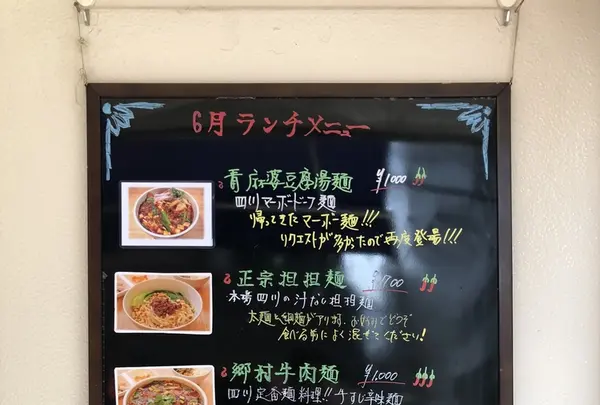 6月ランチメニュー
青麻婆豆腐湯麺 ¥1000
四川マーボードーフ麺
帰ってきたマーボー麺!!!
リクエストが多かったので再度登場!!!
正宗担担麺 ¥700
本場四川の汁なし担担麺
太麺と細麺がアリます、お好りでどうぞ
食べる前によく混ぜてください!
郷村牛肉麺 ¥1,000
四川定番麺料理!!牛すじ辛味麺